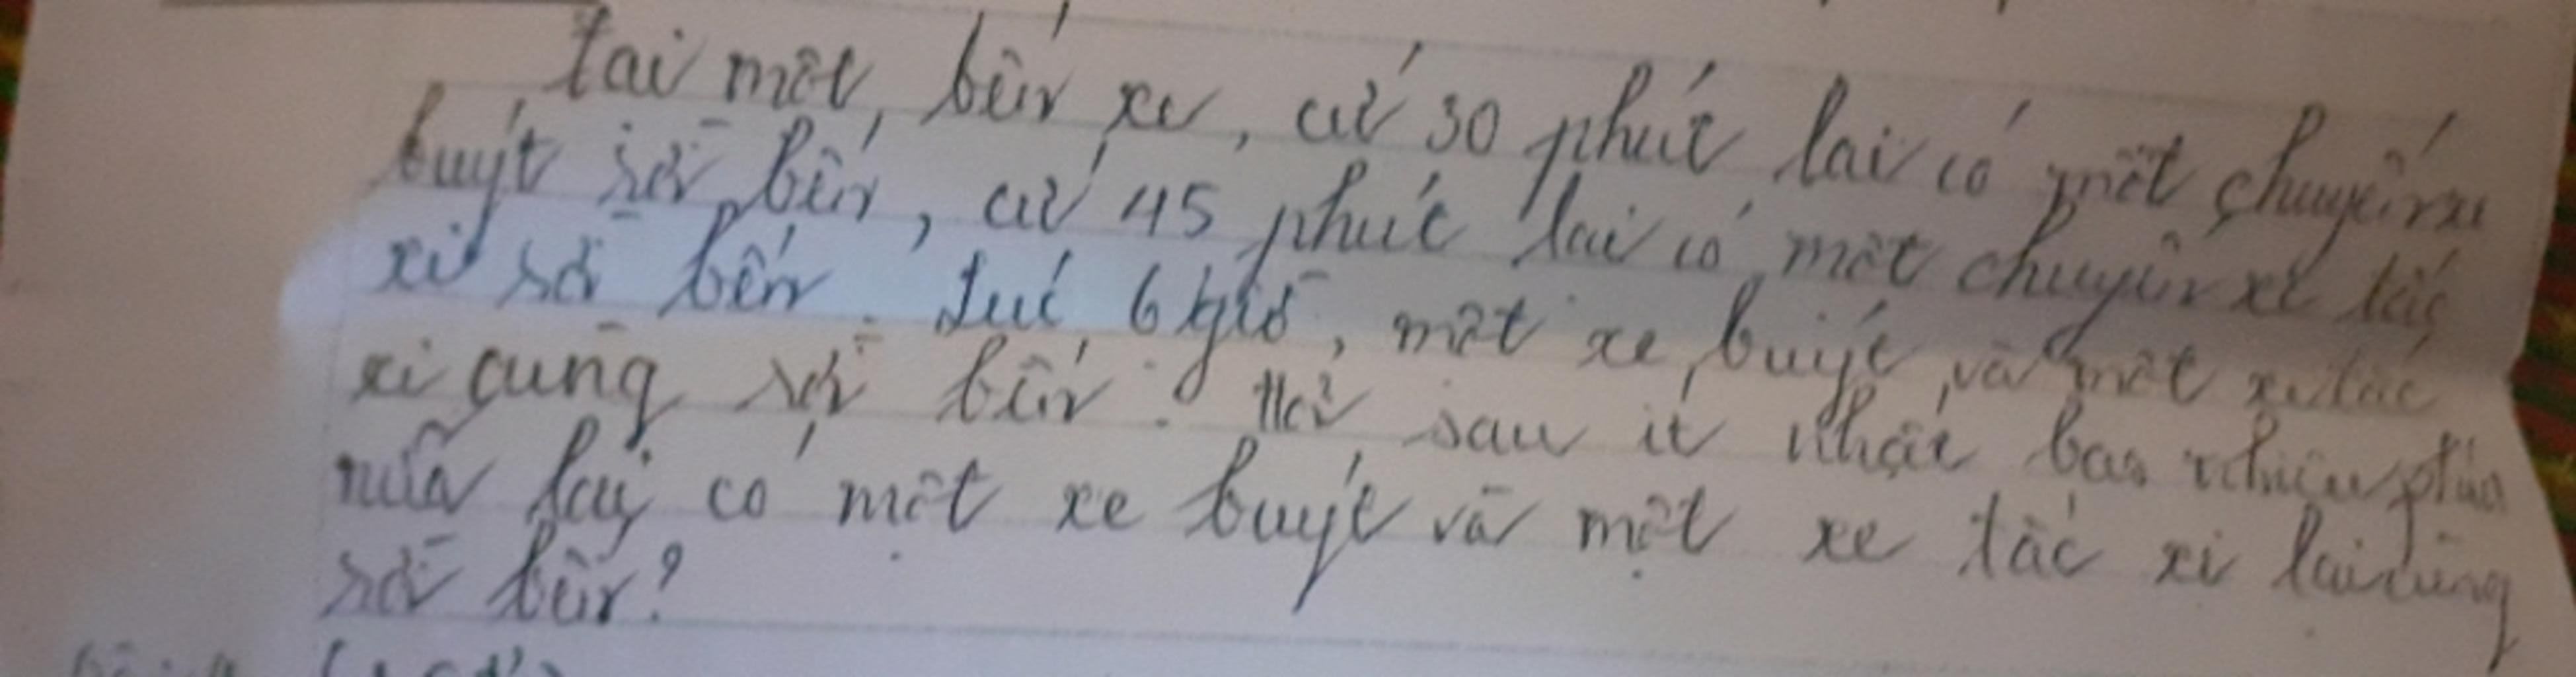 Tại một bến xe, cứ 30 phút lại có một chuyến xe
buýt rời bến, cứ 45 phút lại có một chuyến xe tắc
xi rời bến. Lúc 6 giờ, một xe buýt và một xe tắc
xi cùng rời bến. Hỏi sau ít nhất bao nhiêu phút
nữa lại có một xe buýt và một xe tắc xi lại cùng
rời bến?